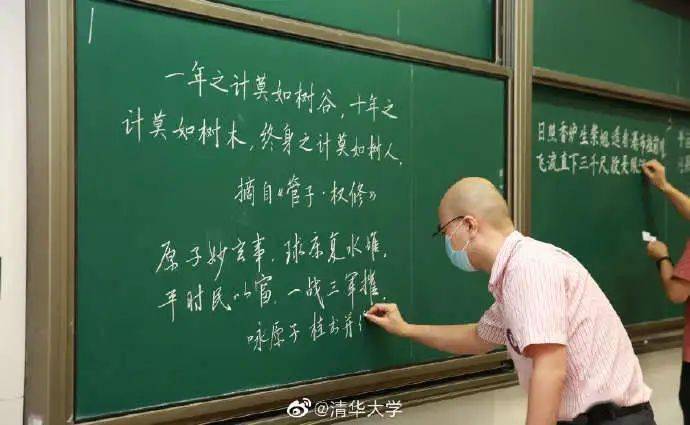 一年之计莫如树谷，十年之
计莫如树木，终身之计莫如树人。
摘自《管子·权修》
原子妙玄事，球原复水堆。
平时民以富，一战三军摧。
咏原子 桂书并
日照香炉生紫烟遥看瀑布挂前川
飞流直下三千尺疑是银
@清华大学